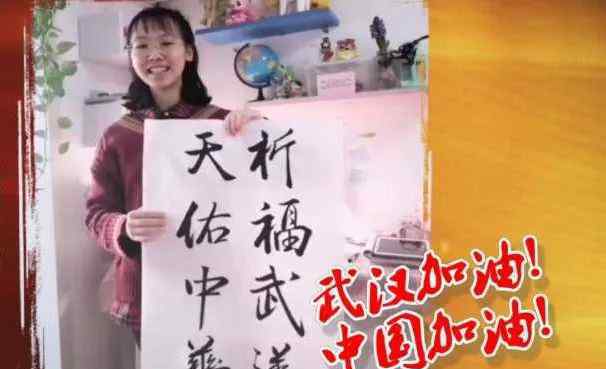 祈福武漢
天佑中華
武汉加油!
中国加油!